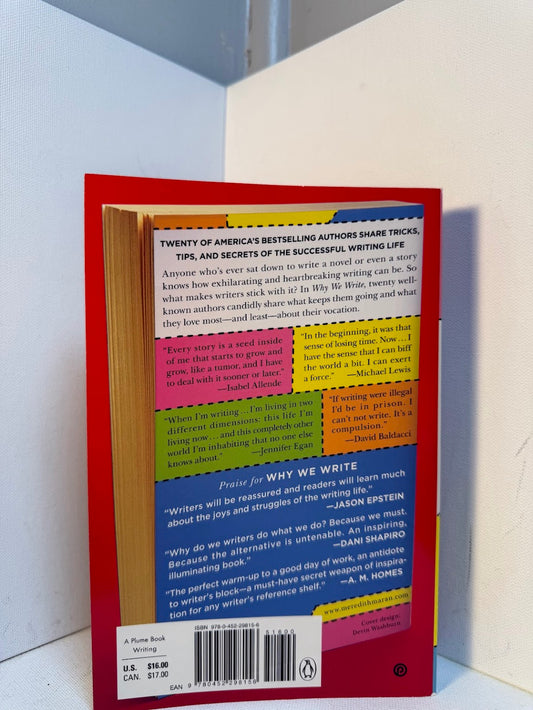 TWENTY OF AMERICA'S BESTSELLING AUTHORS SHARE TRICKS,
TIPS, AND SECRETS OF THE SUCCESSFUL WRITING LIFE
Anyone who's ever sat down to write a novel or even a story
knows how exhilarating and heartbreaking writing can be. So
what makes writers stick with it? In Why We Write, twenty well-
known authors candidly share what keeps them going and what
they love most—and least—about their vocation.
"Every story is a seed inside
of me that starts to grow and
grow, like a tumor, and I have
to deal with it sooner or later."
—Isabel Allende
"In the beginning, it was that
sense of losing time. Now . . . I
have the sense that I can biff
the world a bit. I can exert
a force." —Michael Lewis
"When I'm writing . . . I'm living in two
different dimensions: this life I'm
living now . . . and this completely other
world I'm inhabiting that no one else
knows about." —Jennifer Egan
"If writing were illegal
I'd be in prison. I
can't not write. It's a
compulsion."
—David Baldacci
Praise for WHY WE WRITE
"Writers will be reassured and readers will learn much
about the joys and struggles of the writing life."
—JASON EPSTEIN
"Why do we writers do what we do? Because we must.
Because the alternative is untenable. An inspiring,
illuminating book." —DANI SHAPIRO
"The perfect warm-up to a good day of work, an antidote
to writer's block—a must-have secret weapon of inspira-
tion for any writer's reference shelf." —A. M. HOMES
www.meredithmaran.com
Cover design:
Devin Washburn
A Plume Book
Writing
U.S. $16.00
CAN. $17.00
ISBN 978-0-452-29815-6
51600
EAN 9 780452 298156